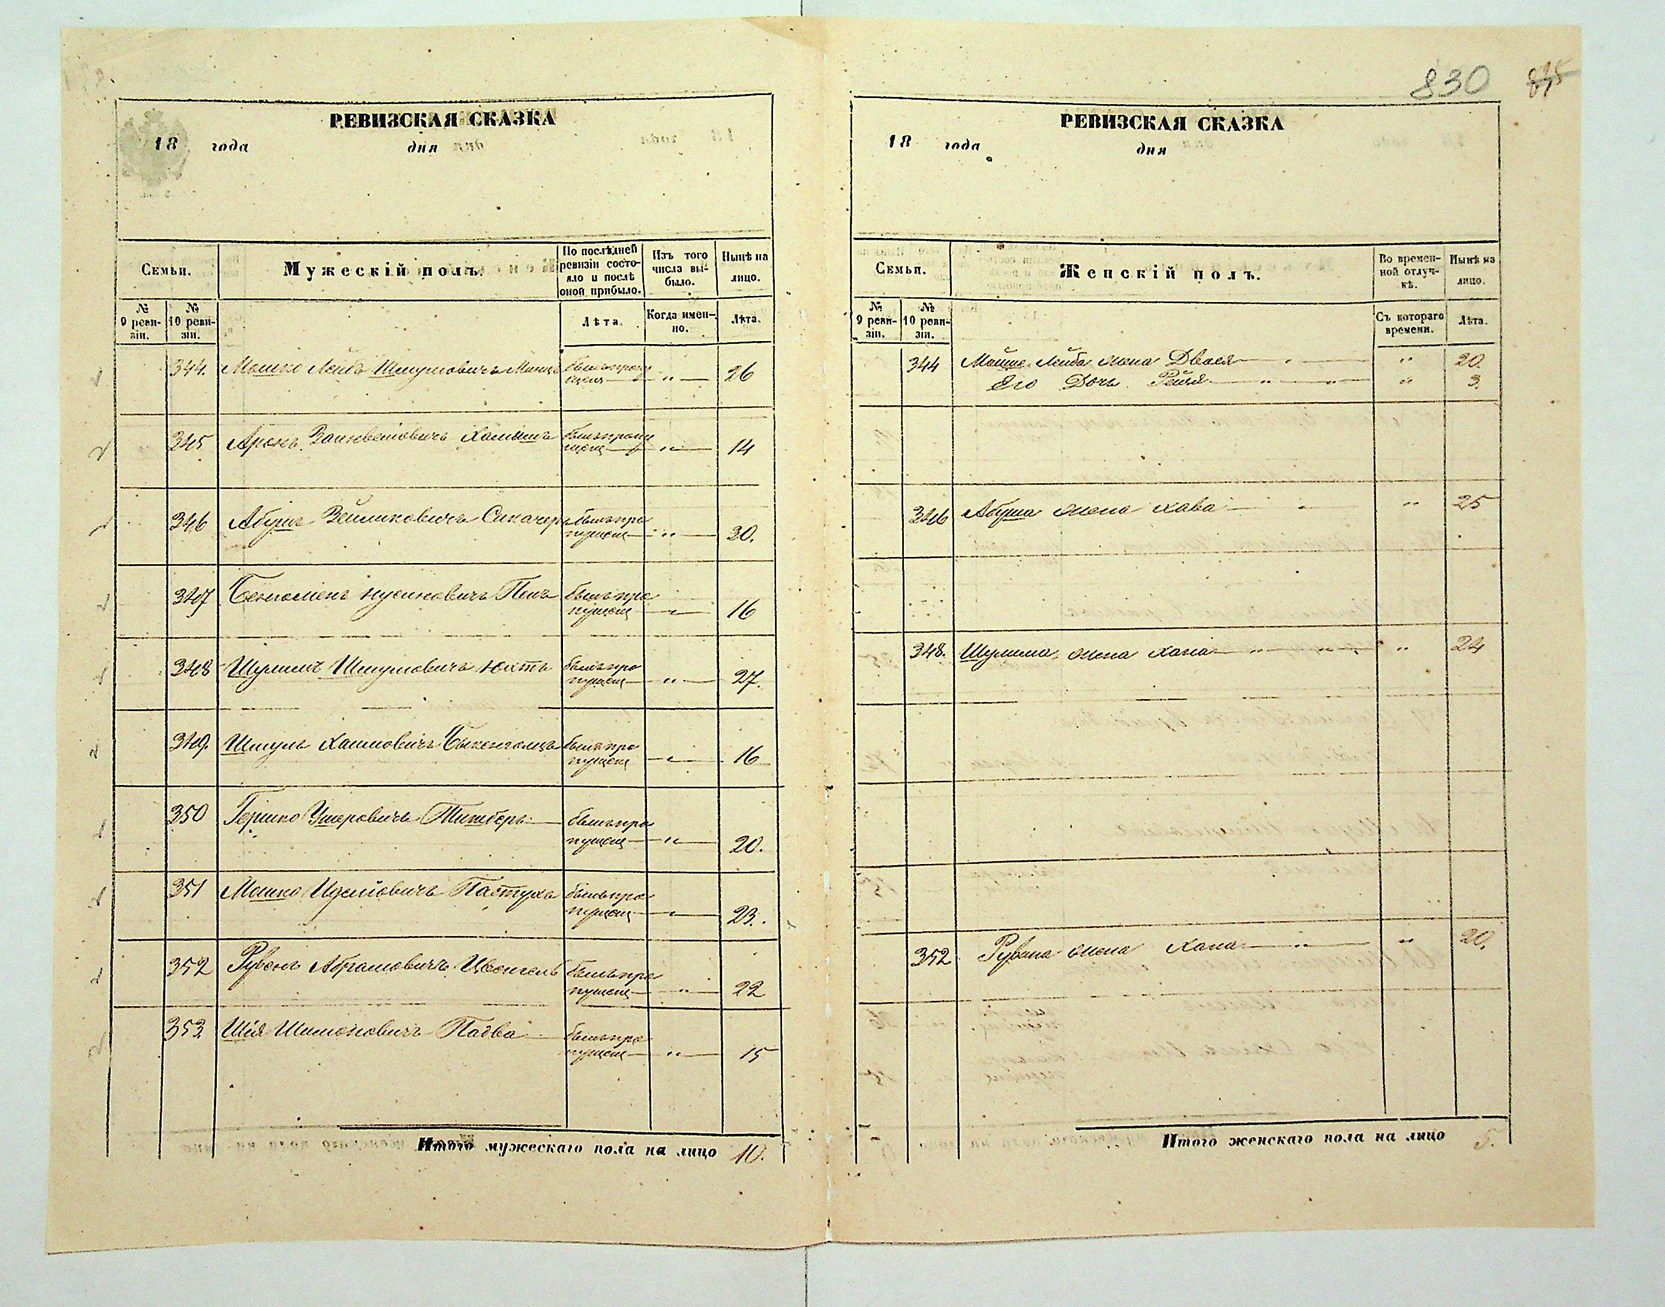 830
РЕВИЗСКАЯ СКАЗКА
18 года дня
Семьи.
Мужескій полъ.
По послѣдней ревизіи состояло и послѣ оной прибыло.
Изъ того числа выбыло.
Нынѣ на лицо.
№ 9 ревизіи.
№ 10 ревизіи.
Лѣта.
Когда именно.
Лѣта.
344 Мошко Лейба Шмулювичъ былъ пропущен „ 26
345 Аронъ былъ пропущен „ 14
346 былъ пропущен „ 30.
347 былъ пропущен „ 16
348 Шулимъ Шмулювичъ былъ пропущен „ 27.
349. Шмуль Хаимовичъ былъ пропущен „ 16
350 Гершко Ушеровичъ былъ пропущен „ 20.
351 Мошко Пастухъ былъ пропущен „ 23.
352 Рувенъ Абрамовичъ былъ пропущен „ 22
353 Шія Шимоновичъ былъ пропущен „ 15
Итого мужескаго пола на лицо 10.
РЕВИЗСКАЯ СКАЗКА
18 года дня
Семьи.
Женскій полъ.
Во временной отлучкѣ.
Нынѣ на лицо.
№ 9 ревизіи.
№ 10 ревизіи.
Съ котораго времени.
Лѣта.
344 Лейба жена Двося „ „ 20.
Его Дочь „ „ „ 3.
346 Абуша жена Хава „ „ 25
348. Шулима жена Хана „ „ „ 24
352 Рувена жена Хана „ „ 20.
Итого женскаго пола на лицо 5.